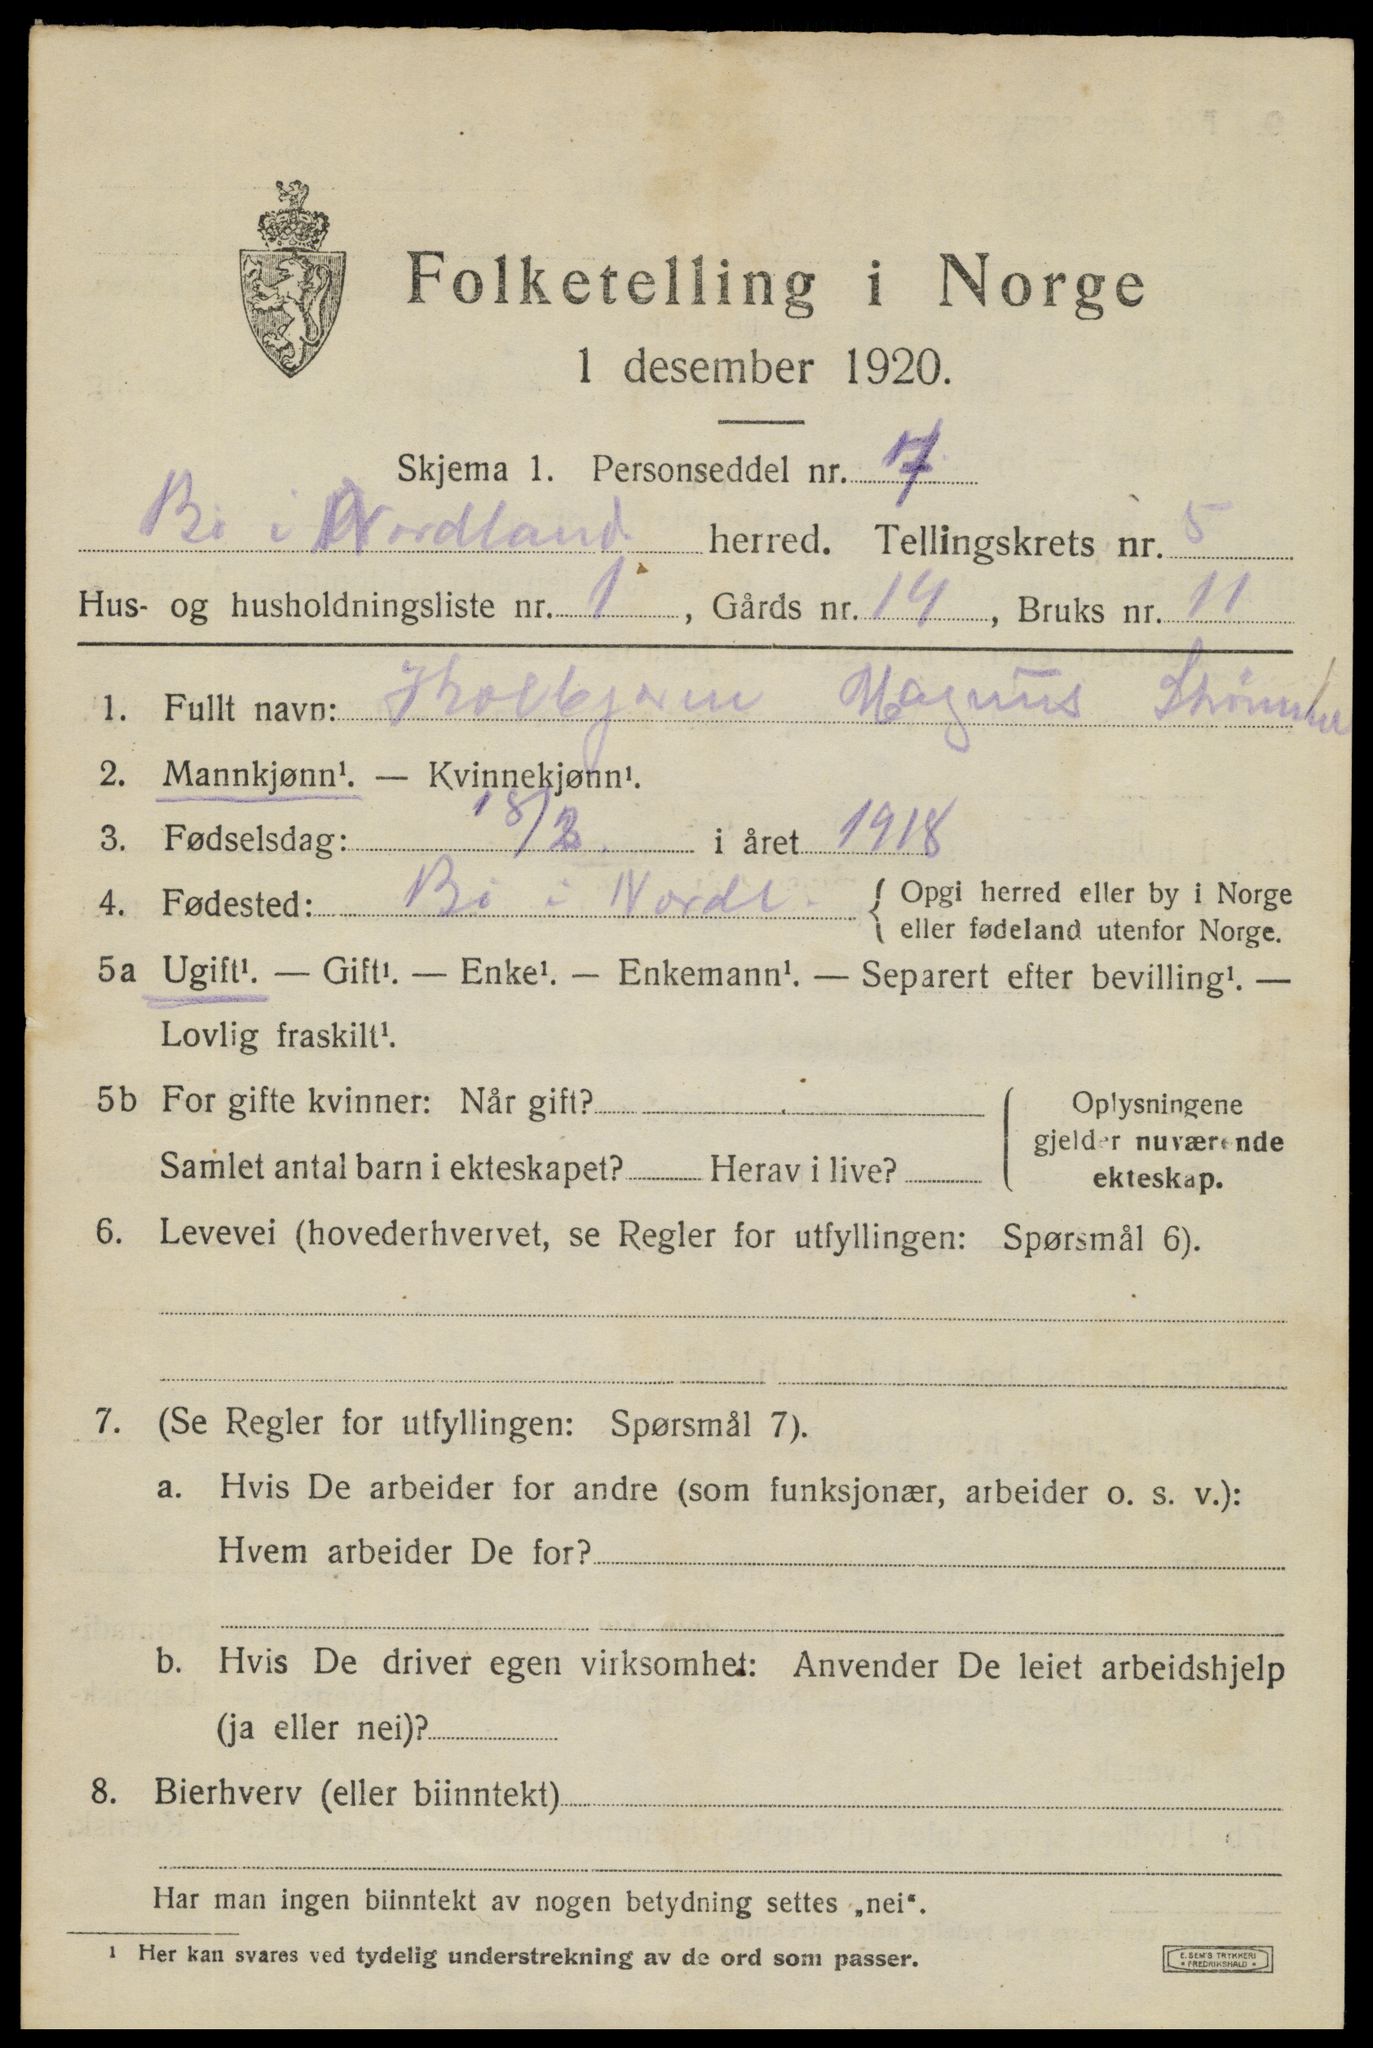 Folketelling i Norge
1 desember 1920.
Skjema 1. Personseddel nr. 7
Bø i Nordland herred. Tellingskrets nr. 5
Hus- og husholdningsliste nr. 1, Gårds nr. 14, Bruks nr. 11
1. Fullt navn: Magnus
2. Mannkjønn¹. — Kvinnekjønn¹.
3. Fødselsdag: 18/2 i året 1918
4. Fødested: Bø i Nordl. { Opgi herred eller by i Norge
eller fødeland utenfor Norge.
5a Ugift¹. — Gift¹. — Enke¹. — Enkemann¹. — Separert efter bevilling¹. —
Lovlig fraskilt¹.
5b For gifte kvinner: Når gift?
Samlet antal barn i ekteskapet? Herav i live?
Oplysningene
gjelder nuværende
ekteskap.
6. Levevei (hovederhvervet, se Regler for utfyllingen: Spørsmål 6).
7. (Se Regler for utfyllingen: Spørsmål 7).
a. Hvis De arbeider for andre (som funksjonær, arbeider o. s. v.):
Hvem arbeider De for?
b. Hvis De driver egen virksomhet: Anvender De leiet arbeidshjelp
(ja eller nei)?
8. Bierhverv (eller biinntekt)
Har man ingen biinntekt av nogen betydning settes „nei“.
1 Her kan svares ved tydelig understrekning av de ord som passer.
E. SEM'S TRYKKERI
• FREDRIKSHALD •